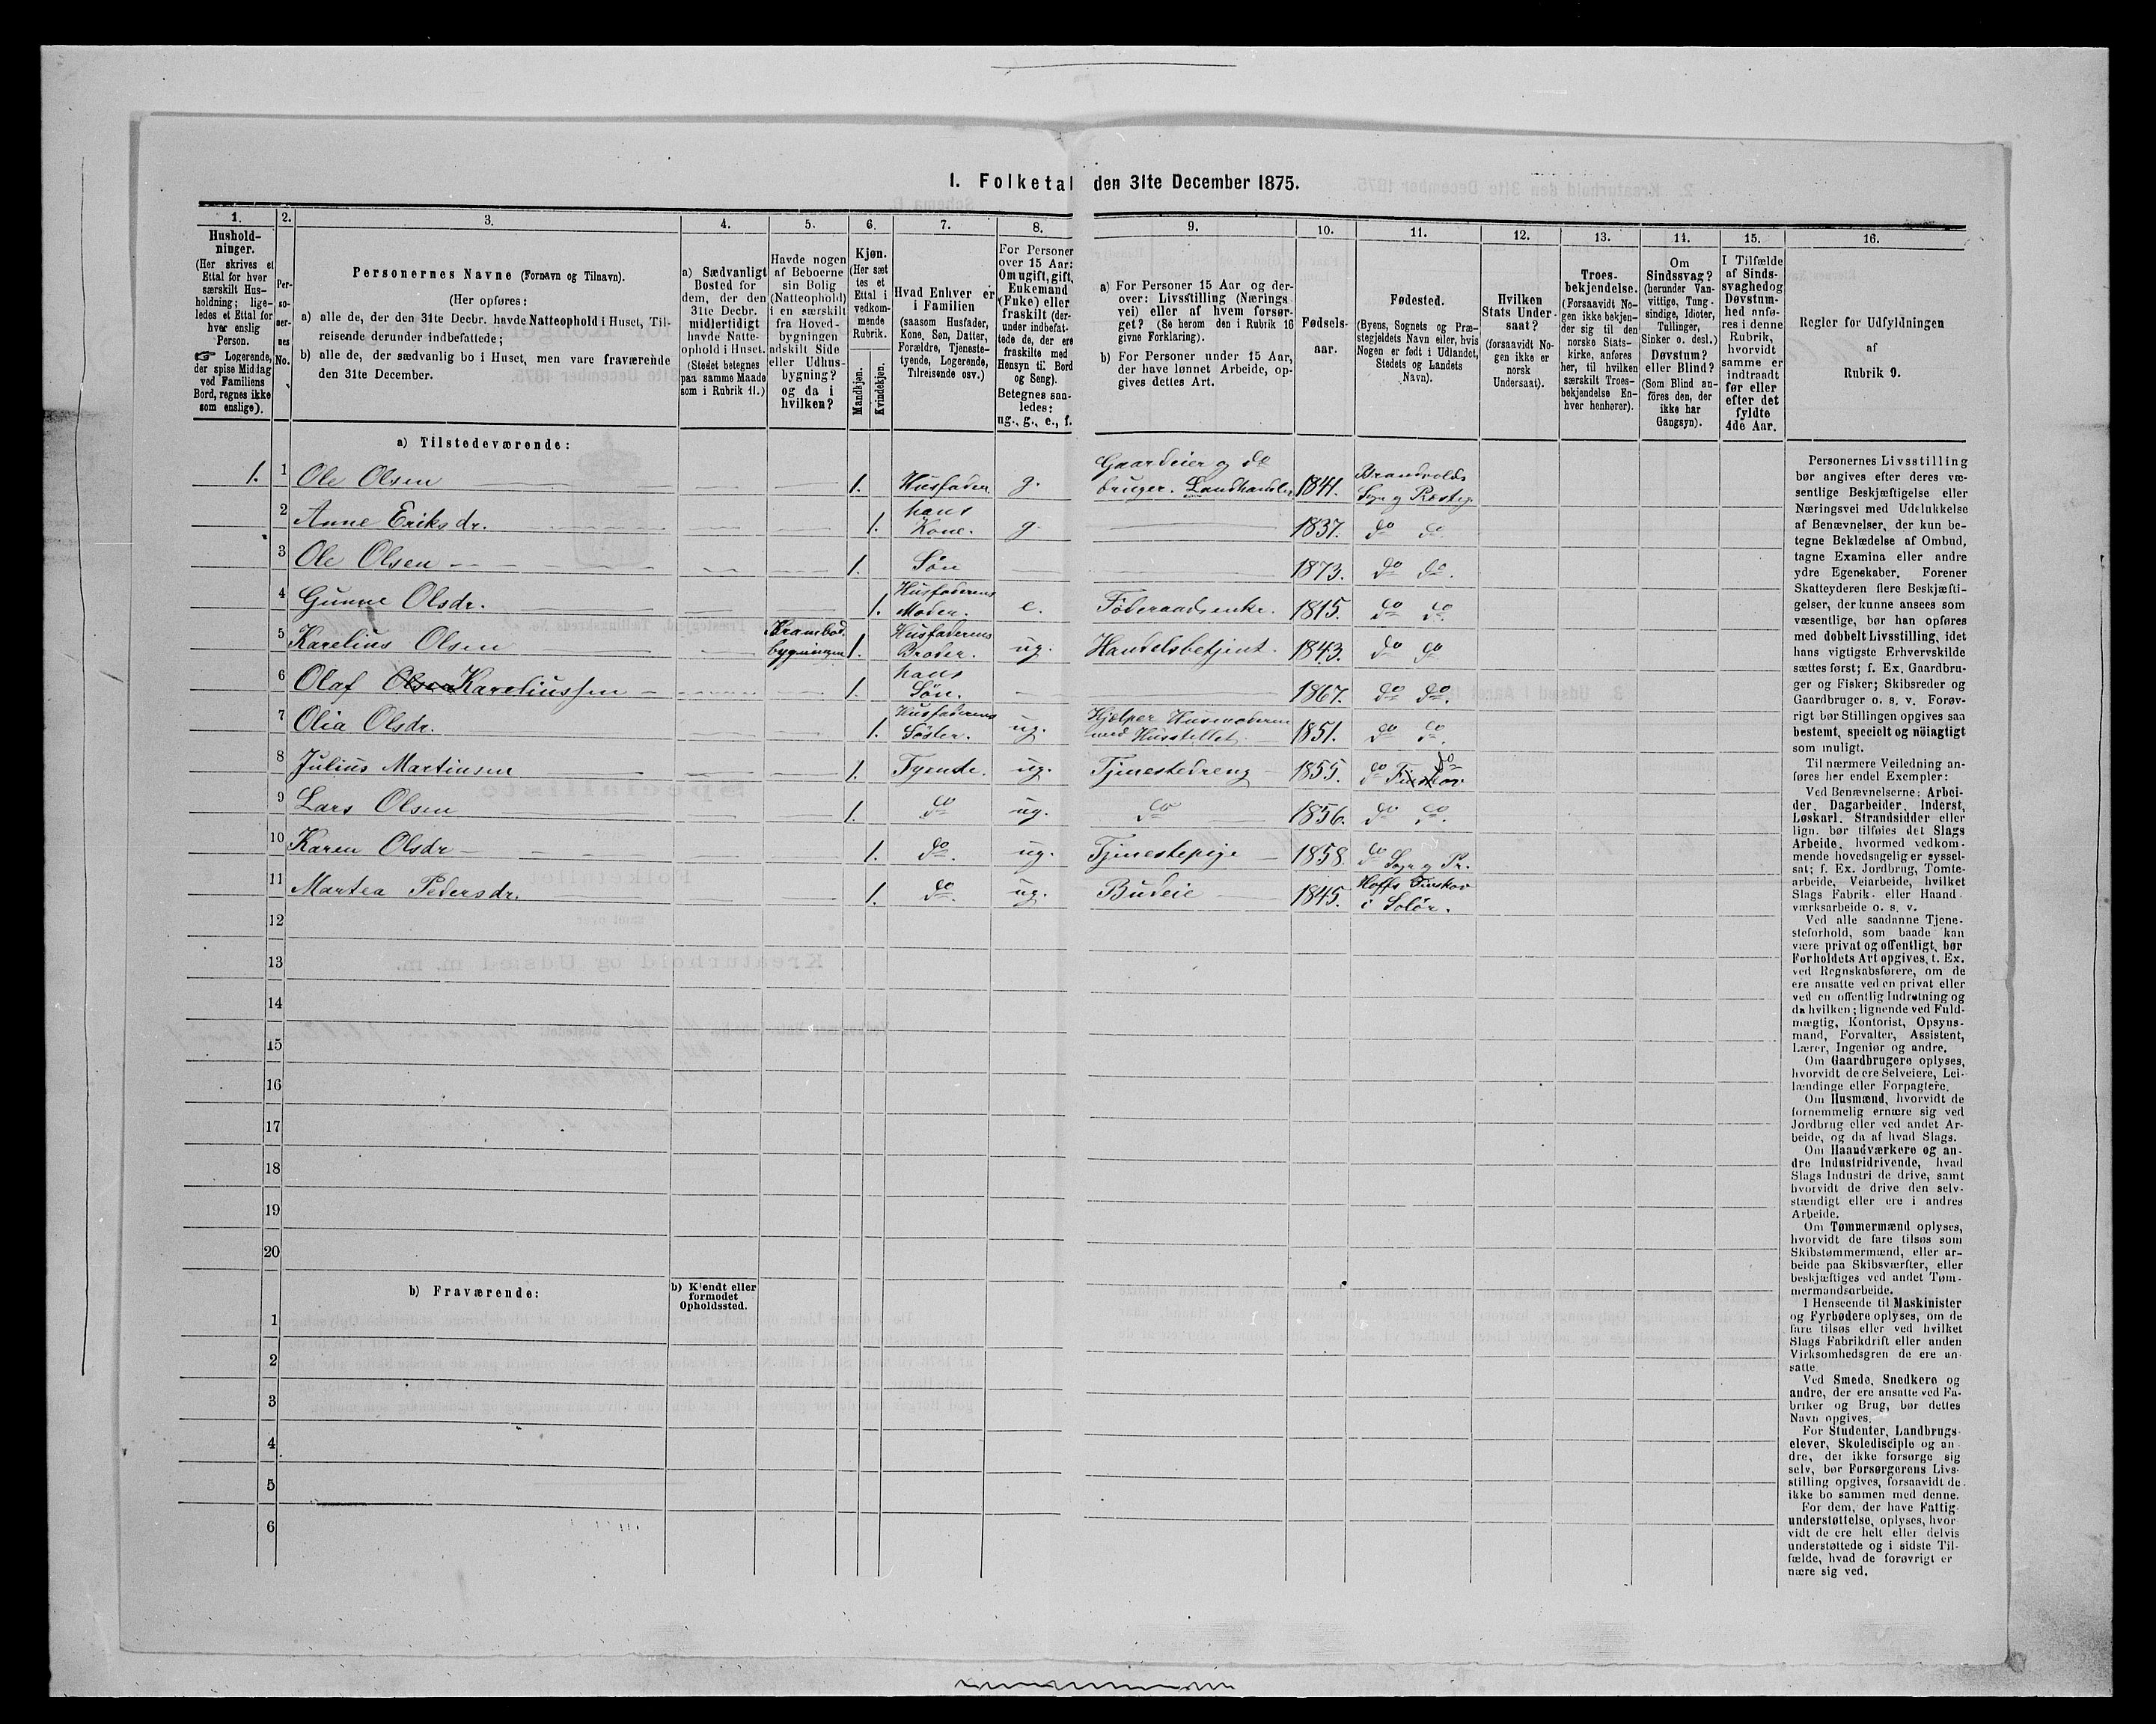 1. Folketal den 31te December 1875.
1. 2. 3. 4. 5. 6. 7. 8. 9. 10. 11. 12. 13. 14. 15. 16.
Hushold-
ninger.
(Her skrives et
Ettal for hver
særskilt Hus-
holdning; lige-
ledes et Ettal for
hver enslig
Person.
☞ Logerende,
der spise Middag
ved Familiens
Bord, regnes ikke
som enslige).
Per-
so-
ner-
nes
No.
Personernes Navne (Fornavn og Tilnavn).
(Her opføres:
a) alle de, der den 31te Decbr. havde Natteophold i Huset, Til-
reisende derunder indbefattede;
b) alle de, der sædvanlig bo i Huset, men vare fraværende
den 31te December.
a) Sædvanligt
Bosted for
dem, der den
31te Decbr.
midlertidigt
havde Natte-
ophold i Huset.
(Stedet betegnes
paa samme Maade
som i Rubrik 11.)
Havde nogen
af Beboerne
sin Bolig
(Natteophold)
i en særskilt
fra Hoved-
bygningen
adskilt Side
eller Udhus-
bygning?
og da i
hvilken?
Kjøn.
(Her sæt
tes et
Ettal i
vedkom-
mende
Rubrik.
Mandkjøn.
Kvindekjøn.
Hvad Enhver er
i Familien
(saasom Husfader,
Kone, Søn, Datter,
Forældre, Tjeneste-
tyende, Logerende,
Tilreisende osv.)
For Personer
over 15 Aar:
Om ugift, gift,
Enkemand
(Enke) eller
fraskilt (der-
under indbefat-
tede de, der ere
fraskilte med
Hensyn til Bord
og Seng).
Betegnes saa-
ledes:
ug., g., e., f.
a) For Personer 15 Aar og der-
over: Livsstilling (Nærings
vei) eller af hvem forsør-
get? (Se herom den i Rubrik 16
givne Forklaring).
b) For Personer under 15 Aar,
der have lønnet Arbeide, op-
gives dettes Art.
Fødsels-
aar.
Fødested.
(Byens, Sognets og Præ-
stegjeldets Navn eller, hvis
Nogen er født i Udlandet,
Stedets og Landets
Navn).
Hvilken
Stats Under-
saat?
(forsaavidt No-
gen ikke er
norsk
Undersaat).
Troes-
bekjendelse.
(Forsaavidt No-
gen ikke bekjen-
der sig til den
norske Stats-
kirke, anføres
her, til hvilken
særskilt Troes-
bekjendelse En-
hver henhører).
Om
Sindssvag?
(herunder Van-
vittige, Tung-
sindige, Idioter,
Tullinger,
Sinker o. desl.)
Døvstum?
eller Blind?
(Som Blind an-
føres den, der
ikke har
Gangsyn).
I Tilfælde
af Sinds-
svaghed og
Døvstum-
hed anfø-
res i denne
Rubrik,
hvorvidt
samme er
indtraadt
før eller
efter det
fyldte
4de Aar.
Regler for Udfyldningen
af
Rubrik 9.
a) Tilstedeværende:
1. 1 Ole Olsen 1. Husfader g. Gaardeier og do
bruger. Landhandler 1841. Brandvolds
Sogn og Præstg.
2 Anne Eriksdr. 1. hans
Kone. g. 1837. do do
3 Ole Olsen 1. Søn 1873. do do.
4 Gunne Olsdr. 1. Husfaderens
Moder. e. Føderaadsenke. 1815. do do
5 Karelius Olsen Krambod
bygningen 1. Husfaderens
Broder. ug. Handelsbetjent. 1843. do do
6 Olaf Olsen Kareliussen 1. hans
Søn. 1867. do do.
7 Olia Olsdr. 1. Husfaderens
Søster. ug. Hjelper Husmoderen
med Husstellet. 1851. do do.
8 Julius Martinsen 1. Tyende. ug. Tjenestedreng 1855. do Finskov do
9 Lars Olsen 1. do ug. do 1856. do do.
10 Karen Olsdr 1. do. ug. Tjenestepige 1858. do Sogn og Pr.
11 Martea Pedersdr. 1. do. ug. Budeie 1845. Hoffs Finskov
i Solør.
12
13
14
15
16
17
18
19
20
b) Fraværende:
b) Kjendt eller
formodet
Opholdssted.
1
2
3
4
5
6
Personernes Livsstilling
bør angives efter deres væ-
sentlige Beskjæftigelse eller
Næringsvei med Udelukkelse
af Benævnelser, der kun be-
tegne Beklædelse af Ombud,
tagne Examina eller andre
ydre Egenskaber. Forener
Skatteyderen flere Beskjæfti-
gelser, der kunne ansees som
væsentlige, bør han opføres
med dobbelt Livsstilling, idet
hans vigtigste Erhvervskilde
sættes først; f. Ex. Gaardbru-
ger og Fisker; Skibsreder og
Gaardbruger o. s. v. Forøv-
rigt bør Stillingen opgives saa
bestemt, specielt og nöiagtigt
som muligt.
Til nærmere Veiledning an-
føres her endel Exempler:
Ved Benævnelserne: Arbei-
der, Dagarbeider, Inderst,
Løskarl, Strandsidder eller
lign. bør tilføies det Slags
Arbeide, hvormed vedkom-
mende hovedsagelig er syssel-
sat; f. Ex. Jordbrug, Tomte-
arbeide, Veiarbeide, hvilket
Slags Fabrik- eller Haand-
værksarbeide o. s. v.
Ved alle saadanne Tjene-
steforhold, som baade kan
være privat og offentligt, bør
Forholdets Art opgives, f. Ex.
ved Regnskabsførere, om de
ere ansatte ved en privat eller
ved en offentlig Indretning og
da hvilken; lignende ved Fuld-
mægtig, Kontorist, Opsyns-
mand, Forvalter, Assistent,
Lærer, Ingeniør og andre.
Om Gaardbrugere oplyses,
hvorvidt de ere Selveiere, Lei-
lændinge eller Forpagtere.
Om Husmænd, hvorvidt de
fornemmelig ernære sig ved
Jordbrug eller ved andet Ar-
beide, og da af hvad Slags.
Om Haandværkere og an-
dre Industridrivende, hvad
Slags Industri de drive, samt
hvorvidt de drive den selv-
stændigt eller ere i andres
Arbeide.
Om Tømmermænd oplyses,
hvorvidt de fare tilsøs som
Skibstømmermænd, eller ar-
beide paa Skibsværfter, eller
beskjæftiges ved andet Tøm-
mermandsarbeide.
I Henseende til Maskinister
og Fyrbødere oplyses, om de
fare tilsøs eller ved hvilket
Slags Fabrikdrift eller anden
Virksomhedsgren de ere an-
satte.
Ved Smede, Snedkere og
andre, der ere ansatte ved Fa-
briker og Brug, bør dettes
Navn opgives.
For Studenter, Landbrugs-
elever, Skoledisciple og an-
dre, der ikke forsørge sig
selv, bør Forsørgerens Livs-
stilling opgives, forsaavidt de
ikke bo sammen med denne.
For dem, der have Fattig-
understøttelse, oplyses, hvor-
vidt de ere helt eller delvis
understøttede og i sidste Til-
fælde, hvad de forøvrigt er
nære sig ved.